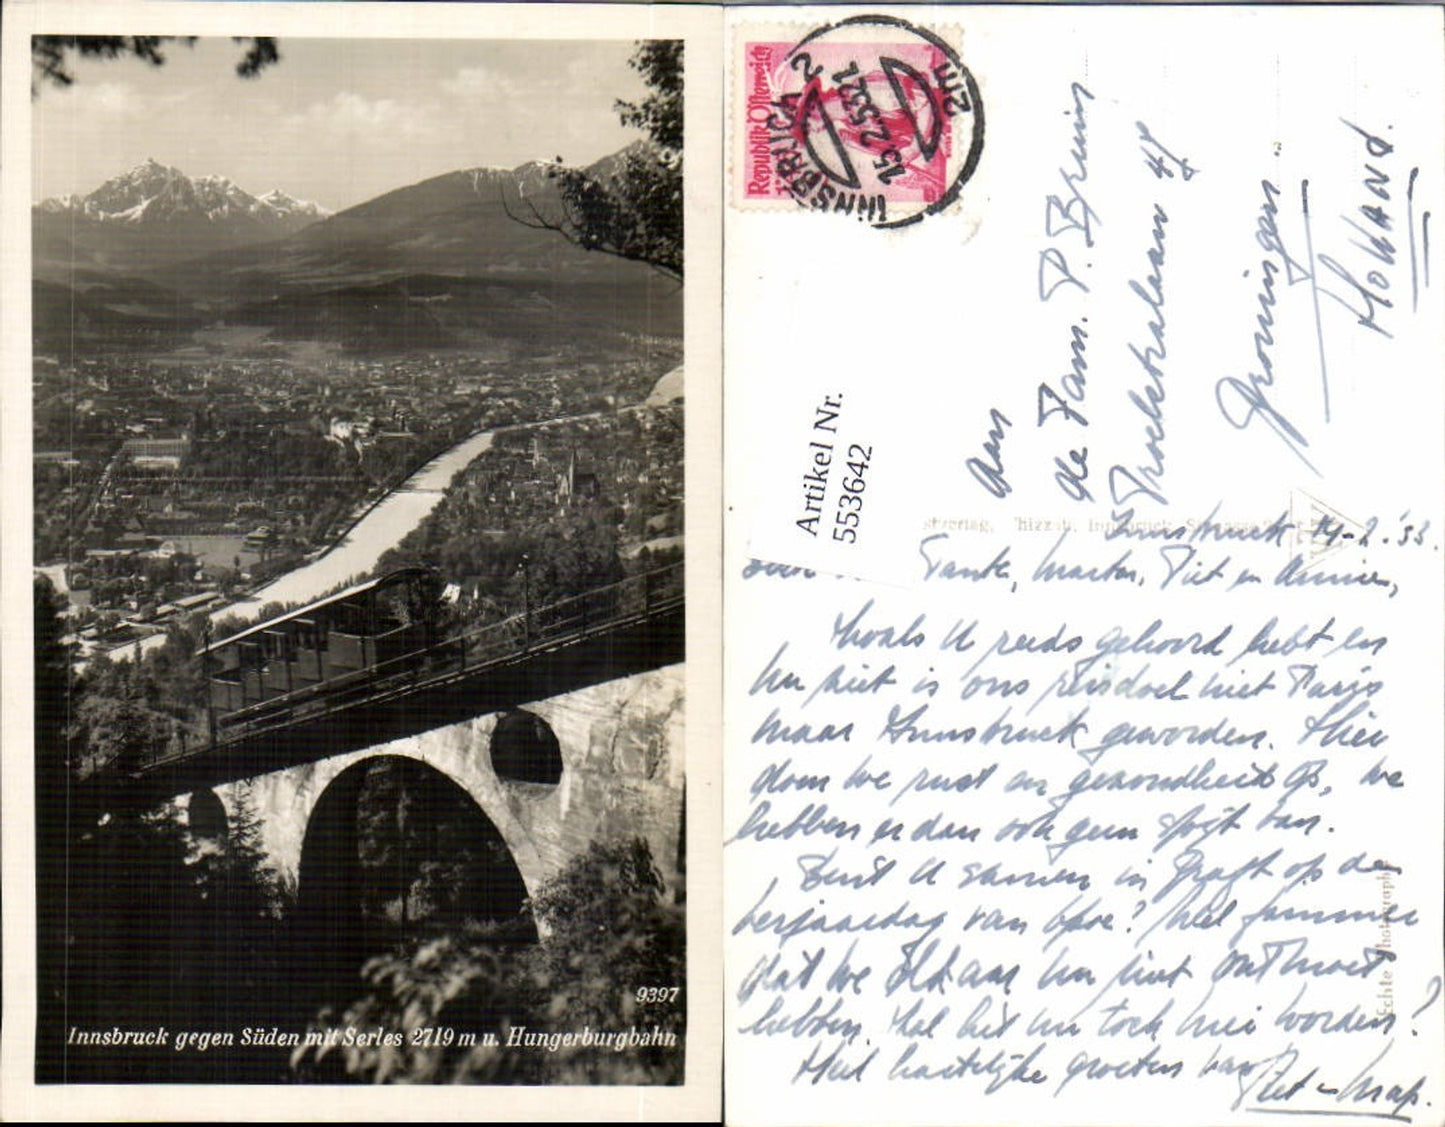 9397
Innsbruck gegen Süden mit Serles 2719 m u. Hungerburgbahn
Republik Österreich
INNSBRUCK 2
15.2.53.21
2m
Artikel Nr.
553642
Aan
de Fam. P. Bruin
47
Groningen.
HOLLAND.
Innsbruck 14-2-'53.
Tante, Martin, Piet en Annie,
Zoals U reeds gehoord hebt en
nu ziet is ons reisdoel niet Parijs
maar Innsbruck geworden. Hier
doen we rust en gezondheid op, we
hebben er dan ook geen spijt van.
Bent U samen in op de
verjaardag van Opoe? Wel jammer
dat we elkaar nu niet ontmoet
hebben. Zal het nu toch mei worden?
Heel hartelijke groeten van
Piet en
Echte Photographie